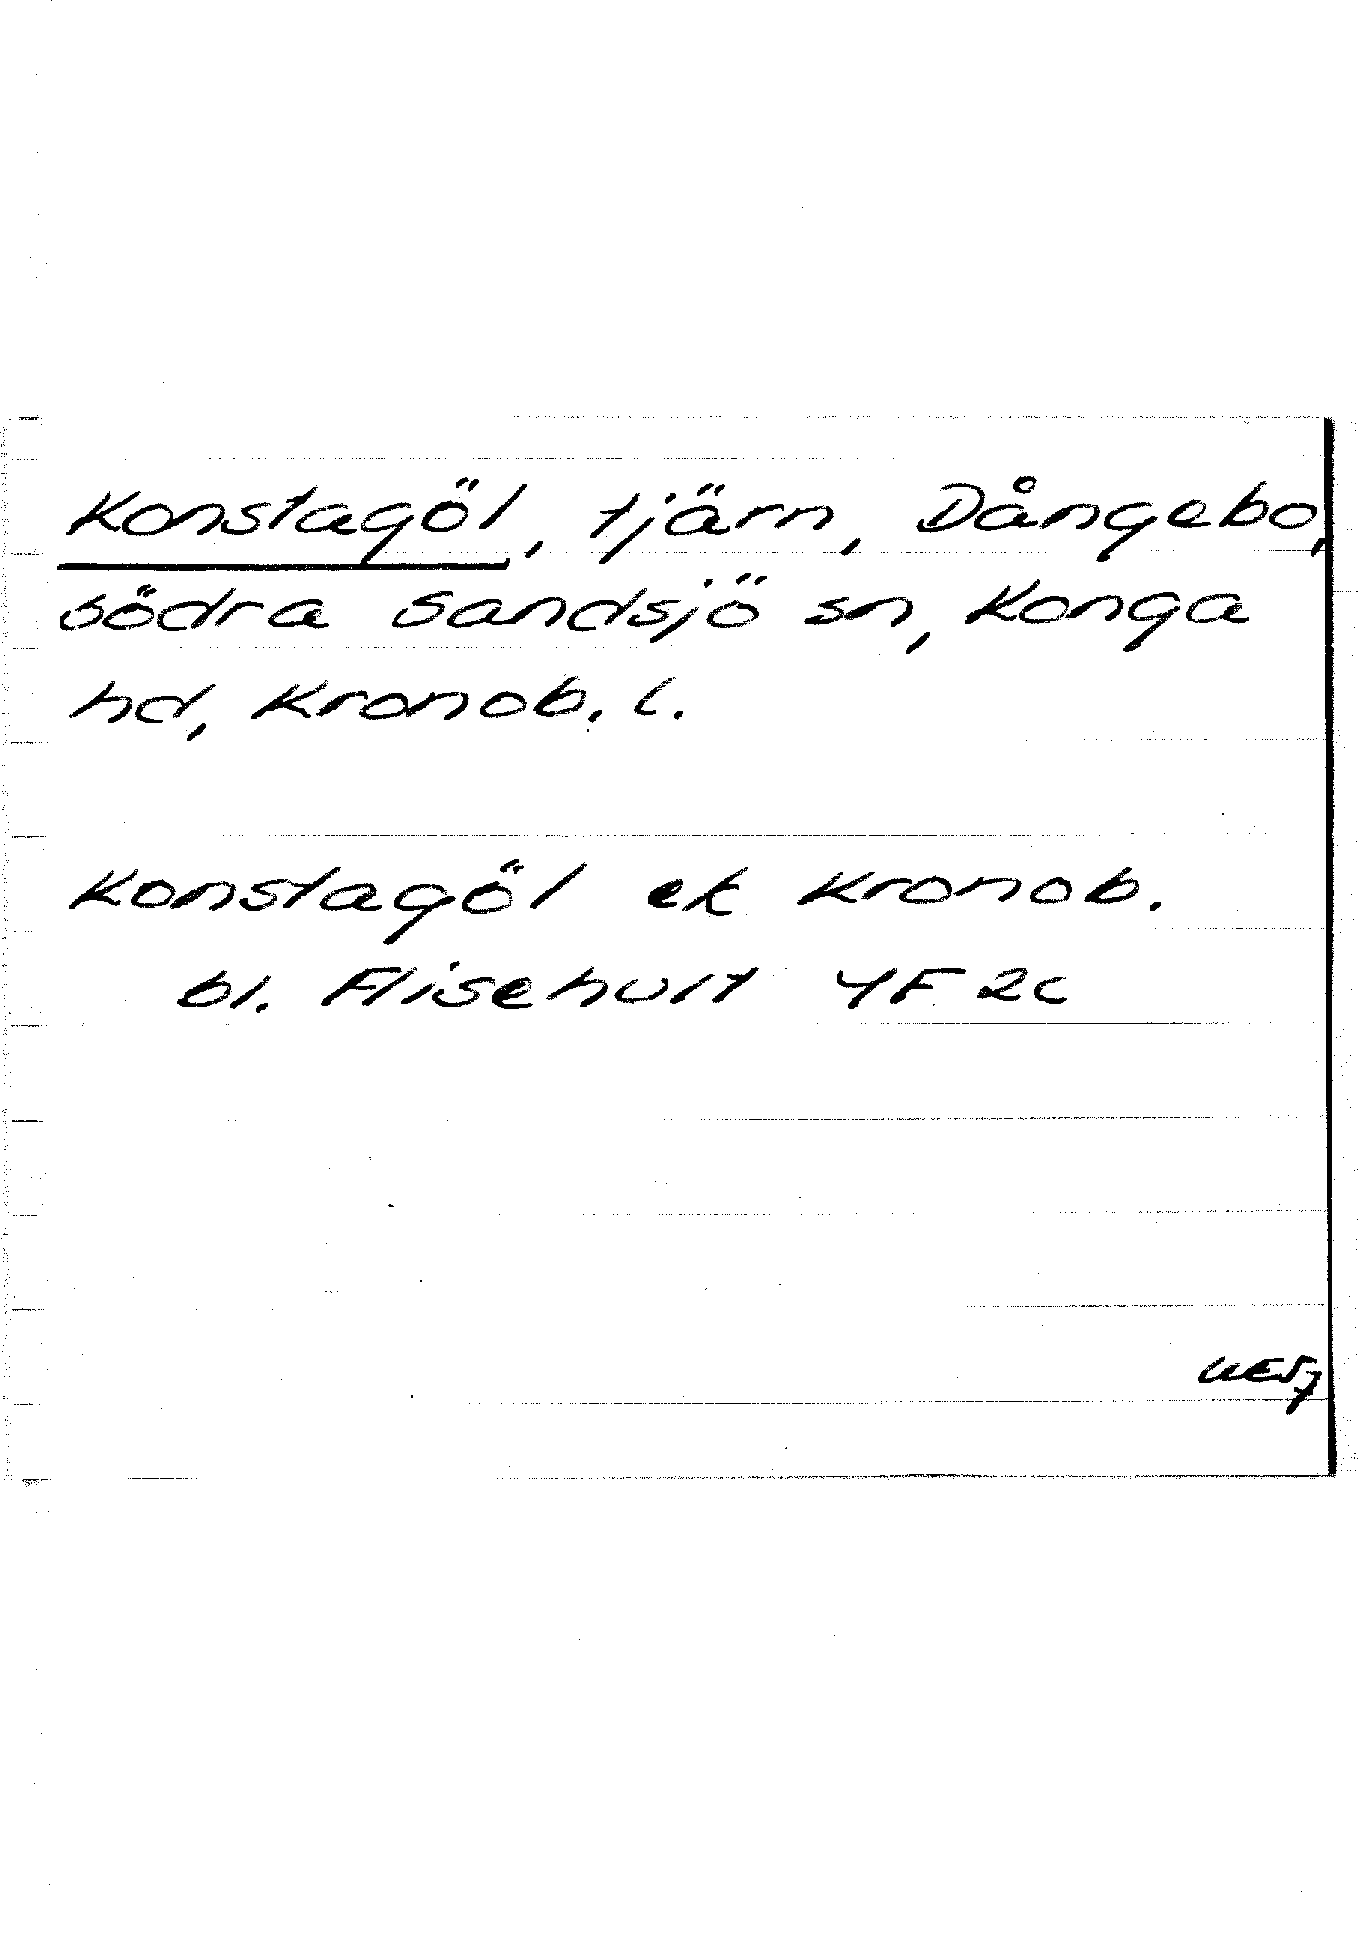 Konstagöl, tjärn, Dångebo,
södra Sandsjö sn, Konga
hd, Kronob. l.
Konstagöl ek Kronob.
bl. Flisehult 4F 2c